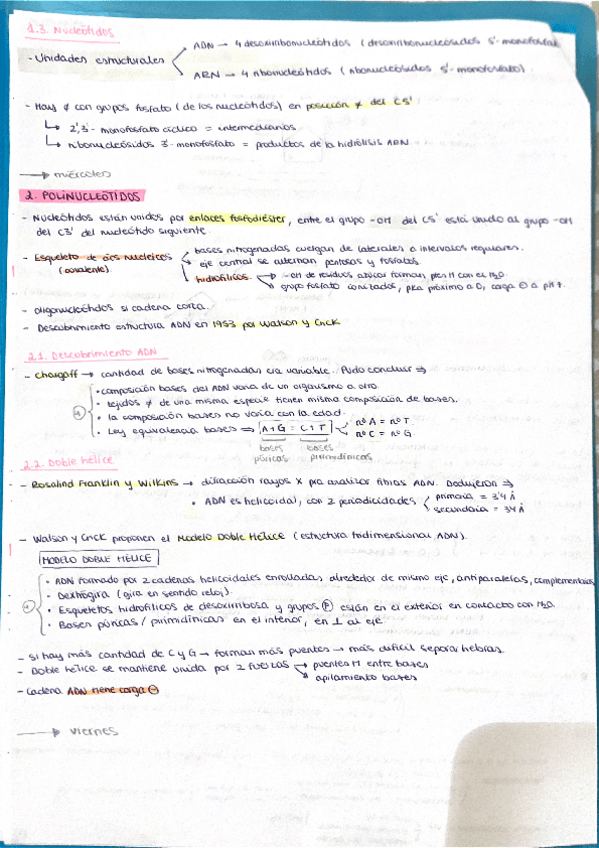 1.3. Nucleótidos
- Unidades estructurales
ADN → 4 desoxirribonucleótidos (desoxirribonucleósidos 5'-monofosfato
ARN → 4 ribonucleótidos (ribonucleósidos 5'-monofosfato).
- Hay ≠ con grupos fosfato (de los nucleótidos) en posición ≠ del C5'
↳ 2',3'-monofosfato cíclico = intermediarios
↳ ribonucleósidos 3'-monofosfato = productos de la hidrólisis ARN
→ miércoles
2. POLINUCLEÓTIDOS
- Nucleótidos están unidos por enlaces fosfodiéster, entre el grupo -OH del C5' está unido al grupo -OH
del C3' del nucleótido siguiente.
- Esqueleto de ács nucleicos
(covalente).
bases nitrogenadas cuelgan de laterales a intervalos regulares.
eje central se alternan pentosas y fosfatos.
hidrofílicos
→ -OH de residuos azúcar forman ptes H con el H2O
→ grupo fosfato ionizados, pKa próximo a 0, carga ⊖ a pH 7.
- oligonucleótidos si cadena corta.
- Descubrimiento estructura ADN en 1953 por Watson y Crick
2.1. Descubrimiento ADN
- Chargaff → cantidad de bases nitrogenadas era variable. Pudo concluir ⇒
• composición bases del ADN varía de un organismo a otro.
• tejidos ≠ de una misma especie tienen misma composición de bases.
• la composición bases no varía con la edad.
• Ley equivalencia bases ⇒ A+G = C+T
nº A = nº T
nº C = nº G
bases púricas
bases pirimidínicas
2.2. Doble hélice
- Rosalind Franklin y Wilkins → difracción rayos X pra analizar fibras ADN. Dedujeron ⇒
• ADN es helicoidal, con 2 periodicidades
primaria = 3'4 Å
secundaria = 34 Å
- Watson y Crick proponen el Modelo Doble Hélice (estructura tridimensional ADN).
MODELO DOBLE HÉLICE
• ADN formado por 2 cadenas helicoidales enrolladas alrededor de mismo eje, antiparalelas, complementarias
• Dextrógira (gira en sentido reloj).
• Esqueletos hidrofílicos de desoxirribosa y grupos Ⓟ están en el exterior en contacto con H2O.
• Bases púricas / pirimidínicas en el interior, en ⊥ al eje.
- Si hay más cantidad de C y G → forman más puentes → más difícil separar hebras.
- Doble hélice se mantiene unida por 2 fuerzas
→ puentes H entre bases
→ apilamiento bases
- Cadena ADN tiene carga ⊖
→ viernes